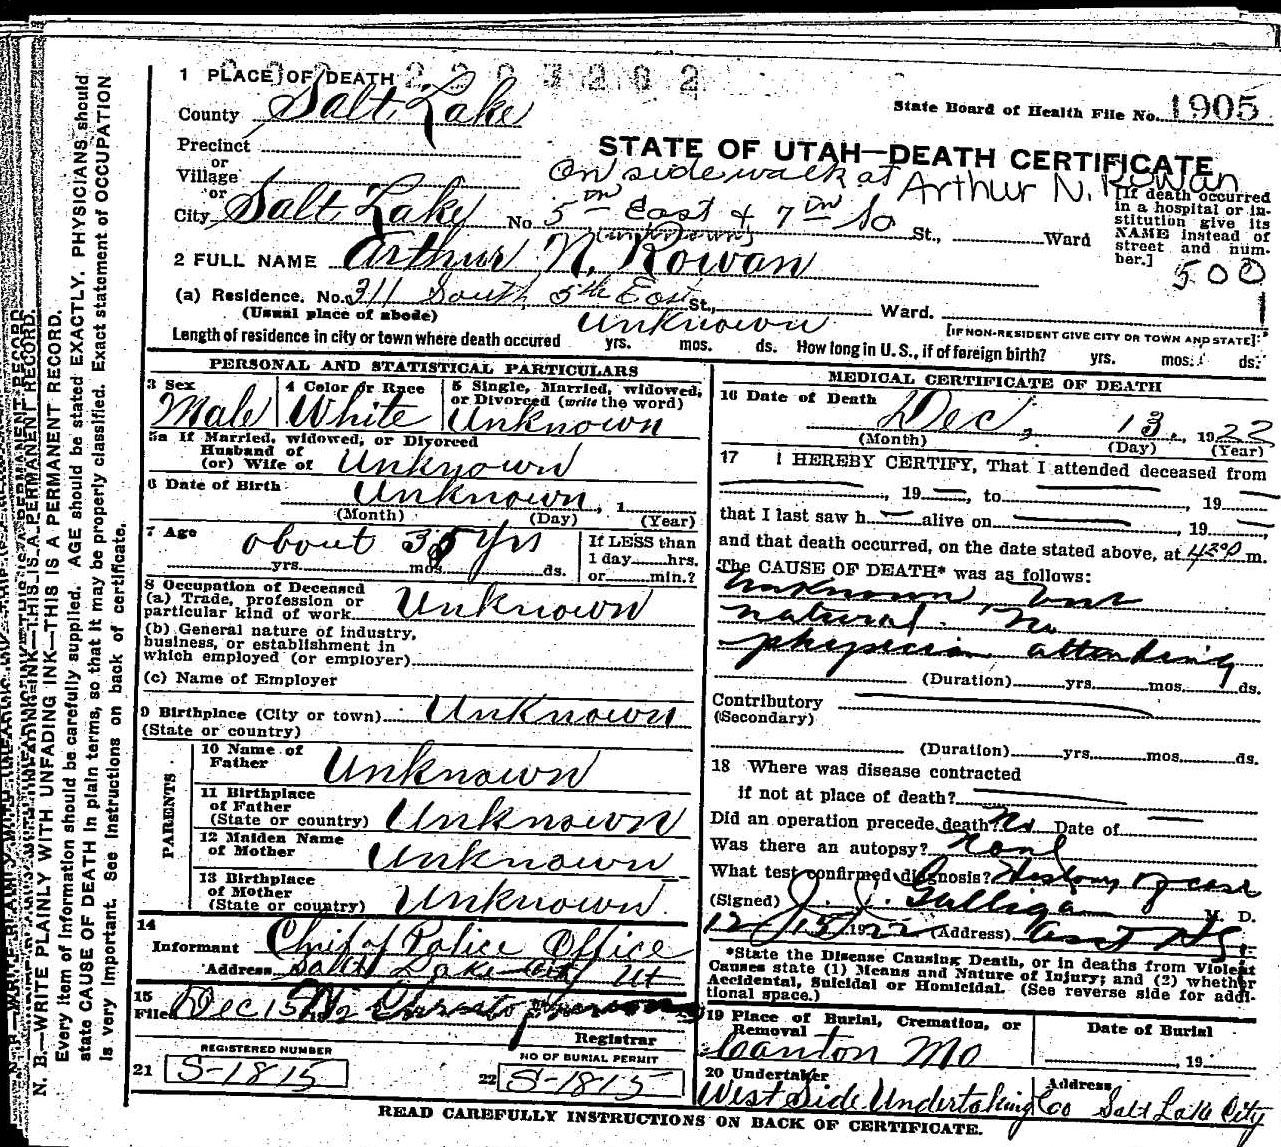 1 PLACE OF DEATH
County Salt Lake
State Board of Health File No. 1905
Precinct
or
Village
or
City Salt Lake No. 5th East & 7th So St., Ward
STATE OF UTAH—DEATH CERTIFICATE
On side walk at Arthur N. Rowan
[If death occurred in a hospital or institution give its NAME instead of street and number.]
500
(unknown)
2 FULL NAME Arthur N. Rowan
(a) Residence. No. 311 South 5th East St., Ward.
(Usual place of abode)
[IF NON-RESIDENT GIVE CITY OR TOWN AND STATE]
Unknown
Length of residence in city or town where death occured yrs. mos. ds. How long in U. S., if of foreign birth? yrs. mos. ds.
PERSONAL AND STATISTICAL PARTICULARS
3 Sex
Male
4 Color or Race
White
5 Single, Married, widowed, or Divorced (write the word)
Unknown
5a If Married, widowed, or Divorced
Husband of
(or) Wife of Unknown
6 Date of Birth Unknown, 1
(Month) (Day) (Year)
7 Age about 35 yrs
yrs. mos. ds.
If LESS than
1 day hrs.
or min.?
8 Occupation of Deceased
(a) Trade, profession or
particular kind of work Unknown
(b) General nature of industry,
business, or establishment in
which employed (or employer)
(c) Name of Employer
9 Birthplace (City or town) Unknown
(State or country)
PARENTS
10 Name of
Father Unknown
11 Birthplace
of Father
(State or country) Unknown
12 Maiden Name
of Mother Unknown
13 Birthplace
of Mother
(State or country) Unknown
14
Informant Chief of Police Office
Address Salt Lake City Ut
15
Filed Dec 15
Registrar
REGISTERED NUMBER
21 S-1815
NO OF BURIAL PERMIT
22 S-1815
MEDICAL CERTIFICATE OF DEATH
16 Date of Death Dec, 13, 1922
(Month) (Day) (Year)
17 I HEREBY CERTIFY, That I attended deceased from
, 19 , to , 19
that I last saw h alive on , 19
and that death occurred, on the date stated above, at 430 P m.
The CAUSE OF DEATH* was as follows:
Unknown, but
natural. No
physician attending
(Duration) yrs. mos. ds.
Contributory
(Secondary)
(Duration) yrs. mos. ds.
18 Where was disease contracted
if not at place of death?
Did an operation precede death? No Date of
Was there an autopsy? None
What test confirmed diagnosis? History of case
(Signed) J. J. Galligan M. D.
12/15 1922 (Address)
*State the Disease Causing Death, or in deaths from Violent
Causes state (1) Means and Nature of Injury; and (2) whether
Accidental, Suicidal or Homicidal. (See reverse side for additional space.)
19 Place of Burial, Cremation, or
Removal
Canton Mo
Date of Burial
, 19
20 Undertaker
West Side Undertaking Co
Address
Salt Lake City
READ CAREFULLY INSTRUCTIONS ON BACK OF CERTIFICATE.
N. B.—WRITE PLAINLY WITH UNFADING INK—THIS IS A PERMANENT RECORD.
Every item of information should be carefully supplied. AGE should be stated EXACTLY. PHYSICIANS should
state CAUSE OF DEATH in plain terms, so that it may be properly classified. Exact statement of OCCUPATION
is very important. See Instructions on back of certificate.